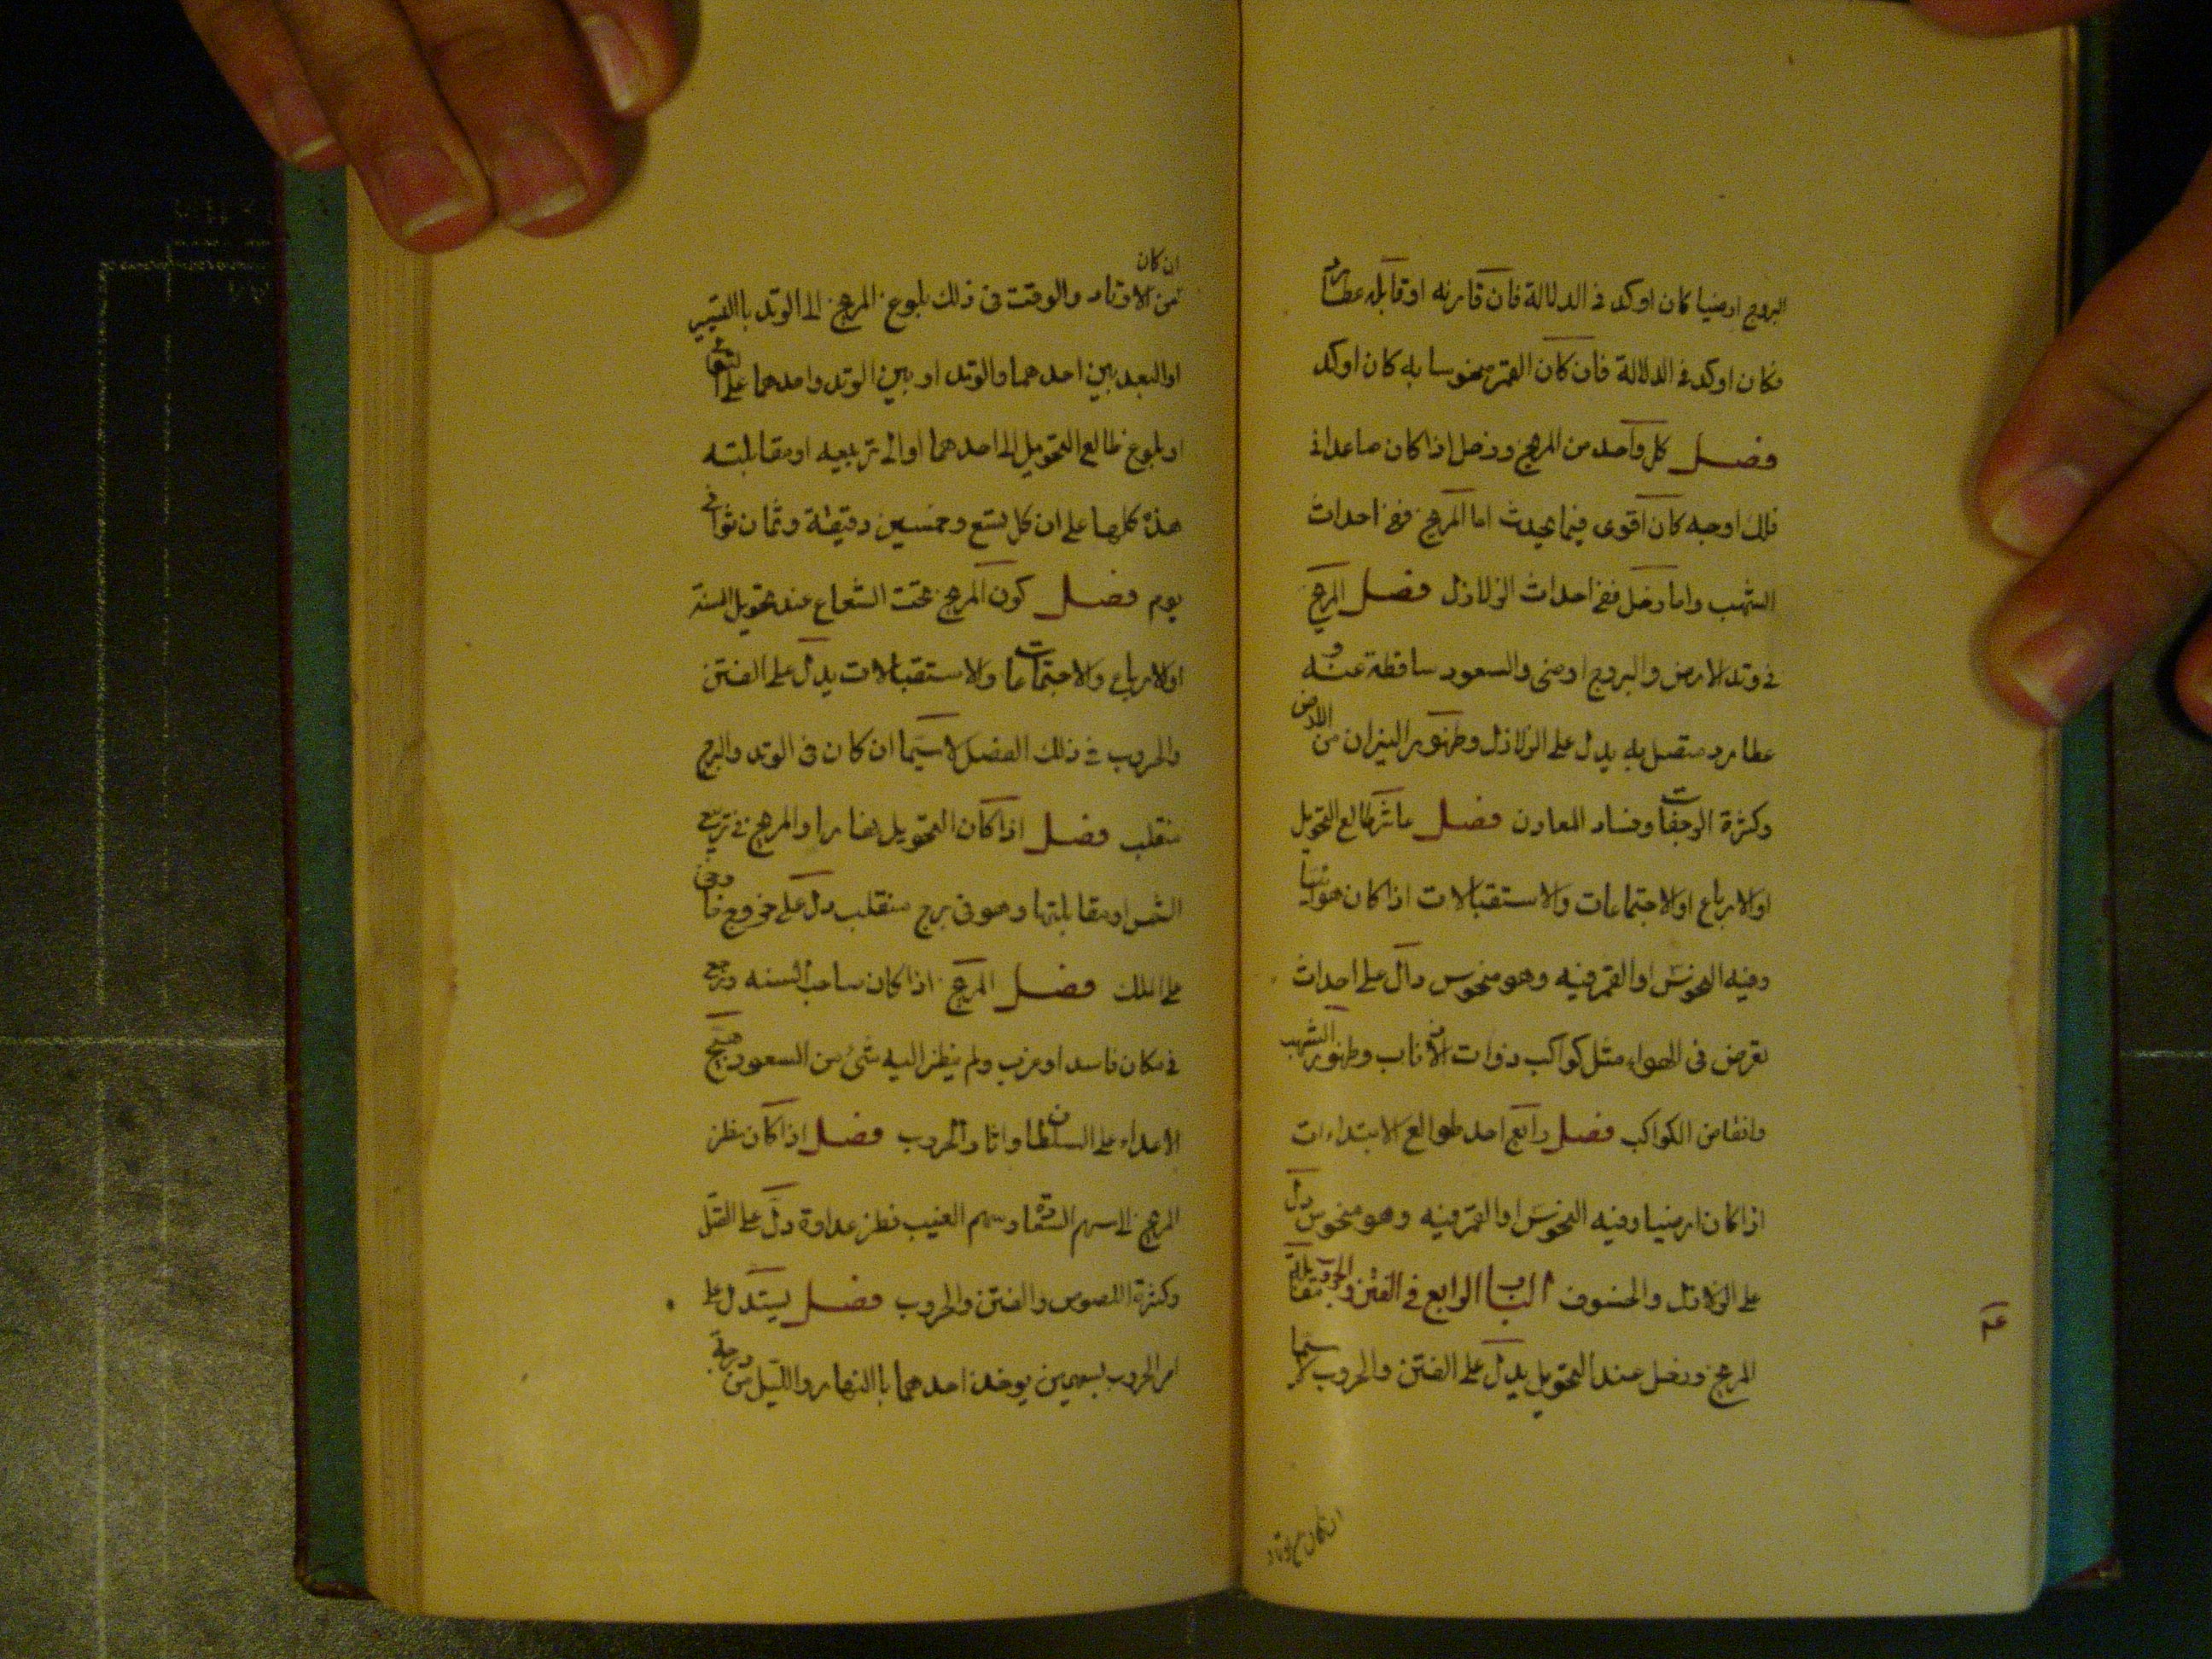 البروج ارضيا كان اوكد فى الدلالة فان قارنه او قابله عطارد
فكان اوكد فى الدلالة فان كان القمر منحوسا به كان اوكد
فصل كل واحد من المريخ وزحل اذا كان صاعدا فى
فلك اوجه كان اقوى فيما يحدث اما المريخ ففى احداث
الشهب واما زحل ففى احداث الزلازل فصل المريخ
فى وتد الارض والبروج ارضى والسعود ساقطة عنه و
عطارد متصل به يدل على الزلازل وظهور النيران من الارض
وكثرة الرجفات وفساد المعادن فصل عاشر طالع التحويل
او الارباع او الاجتماعات والاستقبالات اذا كان هوائيا
وفيه النحوس او القمر فيه وهو منحوس دال على احداث
تعرض فى الهواء مثل كواكب ذوات الاذناب وظهور الشهب
وانقاض الكواكب فصل رابع احد طوالع الابتداءات
اذا كان ارضيا وفيه النحوس او القمر فيه وهو منحوس دل
على الزلازل والخسوف الباب الرابع فى الفتن والحروب مقابلة
المريخ وزحل عند التحويل يدل على الفتن والحروب لا سيما
ان كان من الاوتاد
ان كان
من الاوتاد والوقت فى ذلك بلوغ المريخ الى الوتد باالتسيير
او البعد بين احدهما والوتد او بين الوتد واحدهما على
او بلوغ طالع التحويل الى احدهما او الى تربيعه او مقابلته
هذه كلها على ان كل تسع وخمسين دقيقة وثمان ثوانى
يوم فصل كون المريخ تحت الشعاع عند تحويل السنة
او الارباع والاجتماعات والاستقبالات يدل على الفتن
والحروب فى ذلك الفصل لا سيما ان كان فى الوتد والبرج
منقلب فصل اذا كان التحويل نهارا والمريخ فى تربيع
الشمس او مقابلتها وهو فى برج منقلب دل على خروج خارجى
على الملك فصل المريخ اذا كان صاحب السنه ورجع
فى مكان فاسد او غرب ولم ينظر اليه شىء من السعود هيج
الاعداء على السلطان واثار الحروب فصل اذا كان نظر
المريخ الى سهم السعادة وسهم الغيب نظر عداوة دل على القتل
وكثرة اللصوص والفتن والحروب فصل يستدل على
امر الحروب بسهمين يوخذ احدهما باالنهار والليل من درجة